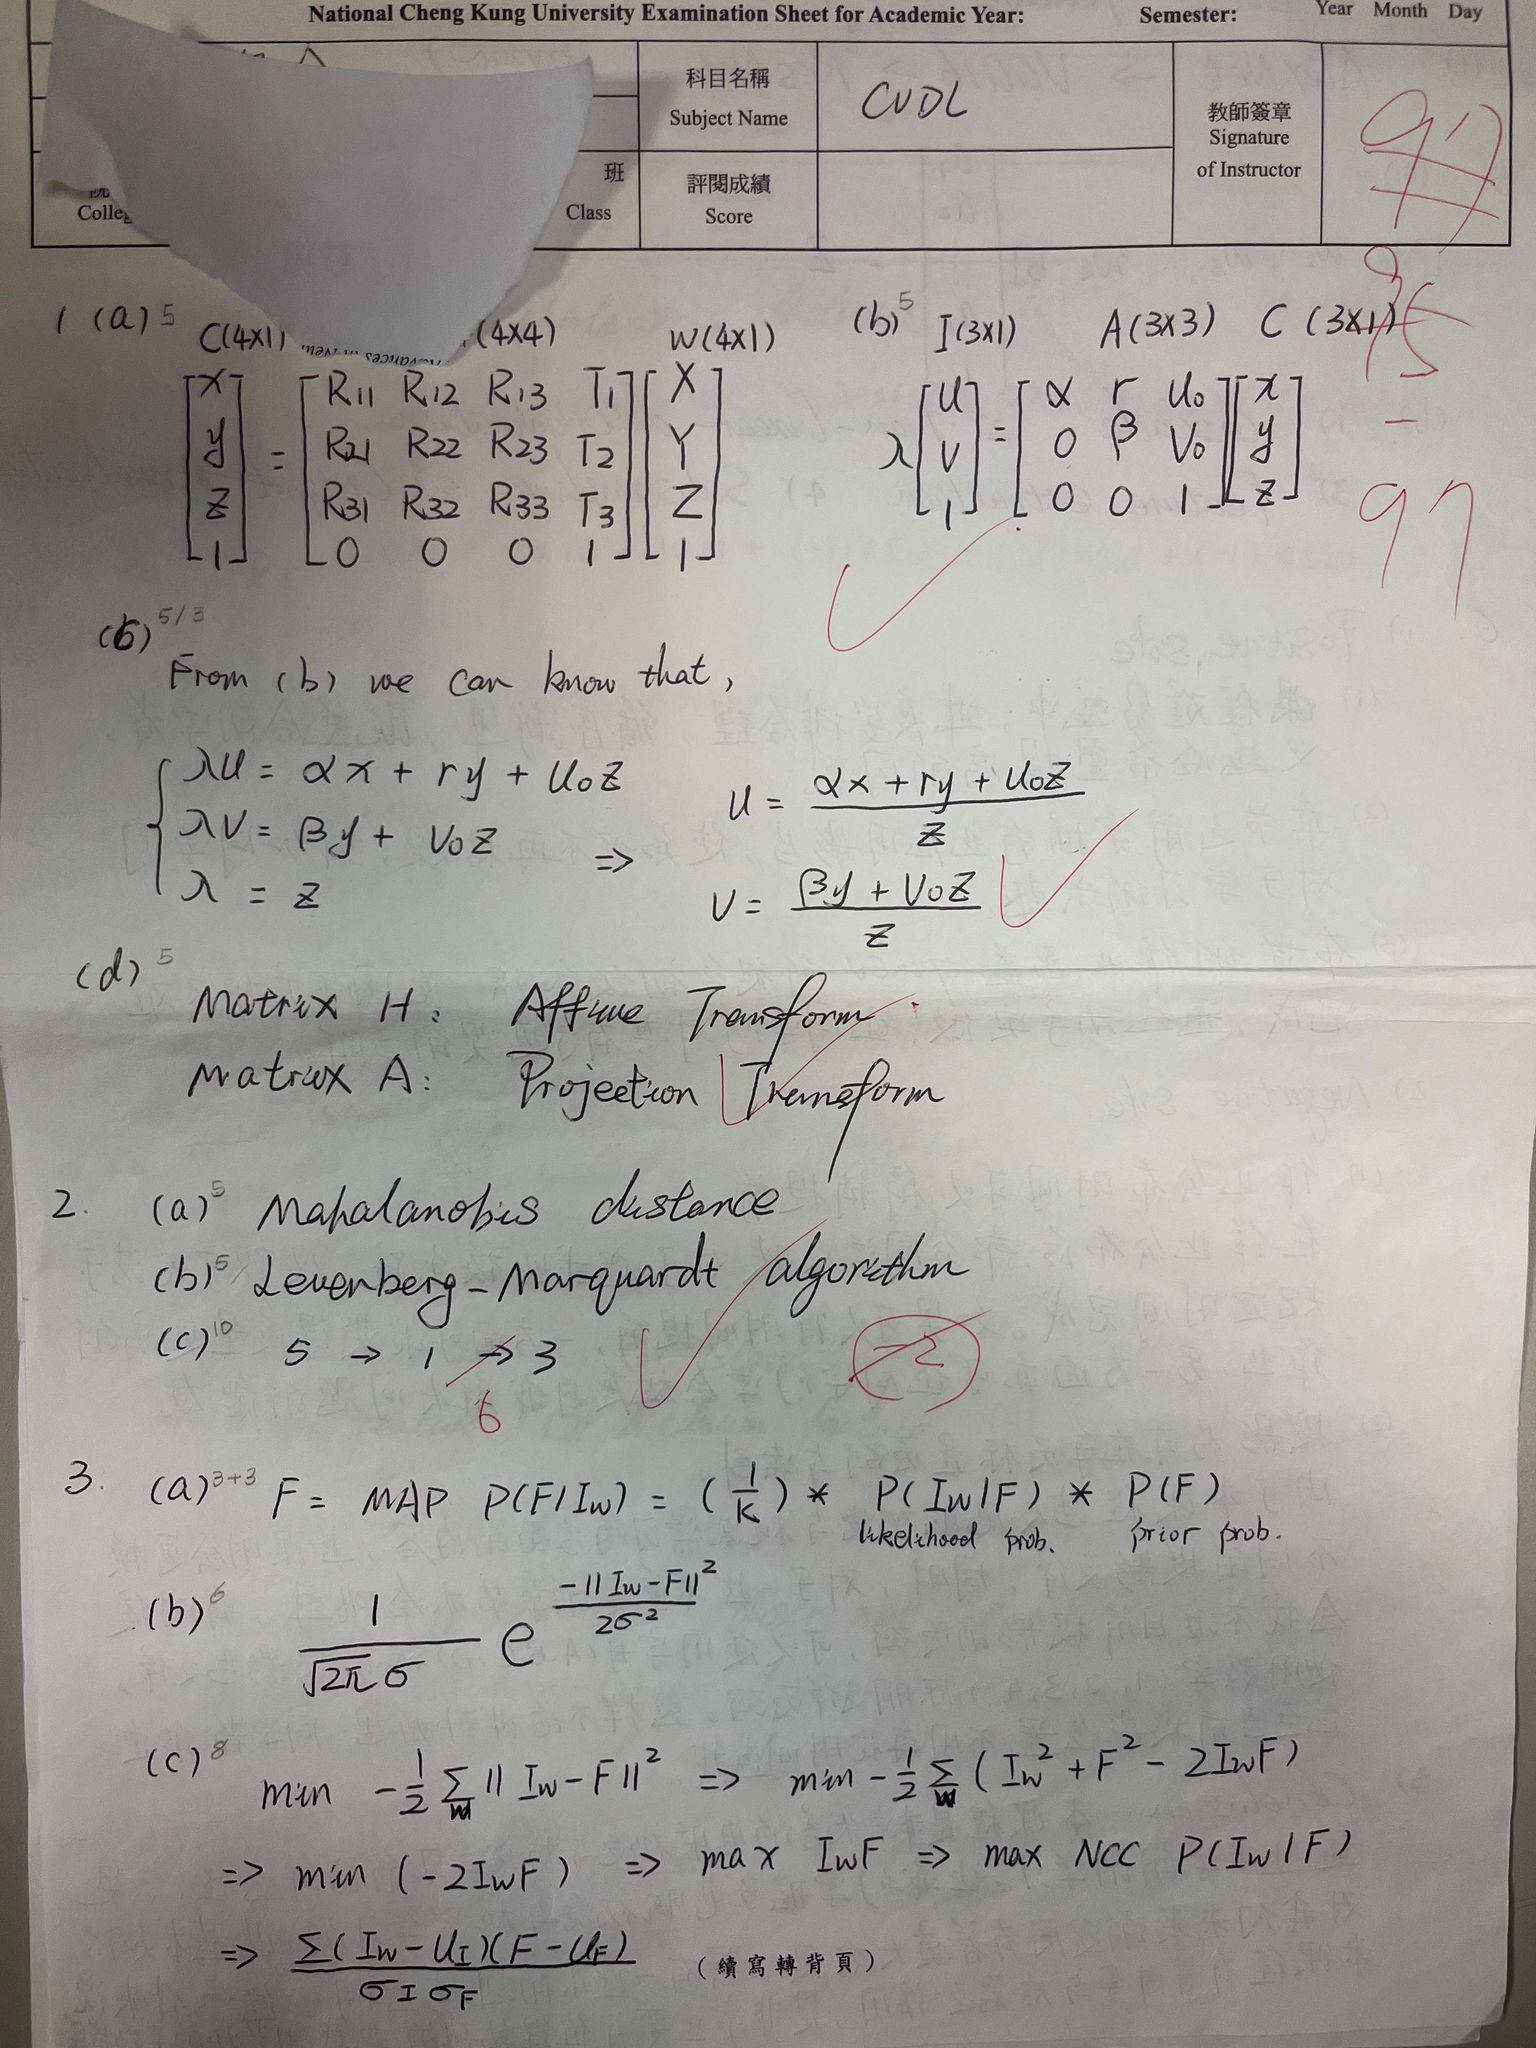 National Cheng Kung University Examination Sheet for Academic Year: Semester: Year Month Day
科目名稱
Subject Name
CVDL
教師簽章
Signature
of Instructor
97
班
Class
評閱成績
Score
95
-
97
1 (a) 5
C(4x1) (4x4) W(4x1)
[x y z 1] = [R11 R12 R13 T1
R21 R22 R23 T2
R31 R32 R33 T3
0 0 0 1] [X Y Z 1]
(b) 5 I(3x1) A(3x3) C (3x1)
λ [u v 1] = [α r u0
0 β v0
0 0 1] [x y z]
5/3
From (b) we can know that,
λu = αx + ry + u0z
λv = βy + v0z
λ = z
=> u = (αx + ry + u0z) / z
v = (βy + v0z) / z
(d) 5
Matrix H: Affine Transform
Matrix A: Projection Transform
2. (a) 5 Mahalanobis distance
(b) 5 Levenberg-Marquardt algorithm
(c) 10 5 → 1 → 3
6
-2
3. (a) 3+3 F = MAP P(F|Iw) = (1/K) * P(Iw|F) * P(F)
likelihood prob. prior prob.
(b) 6 1/(√2π σ) e^(-||Iw-F||²/2σ²)
(c) 8 min -1/2 Σw || Iw - F||² => min -1/2 Σw (Iw² + F² - 2IwF)
=> min (-2IwF) => max IwF => max NCC P(Iw|F)
=> Σ(Iw - UI)(F - UF) / σI σF
(續寫轉背頁)